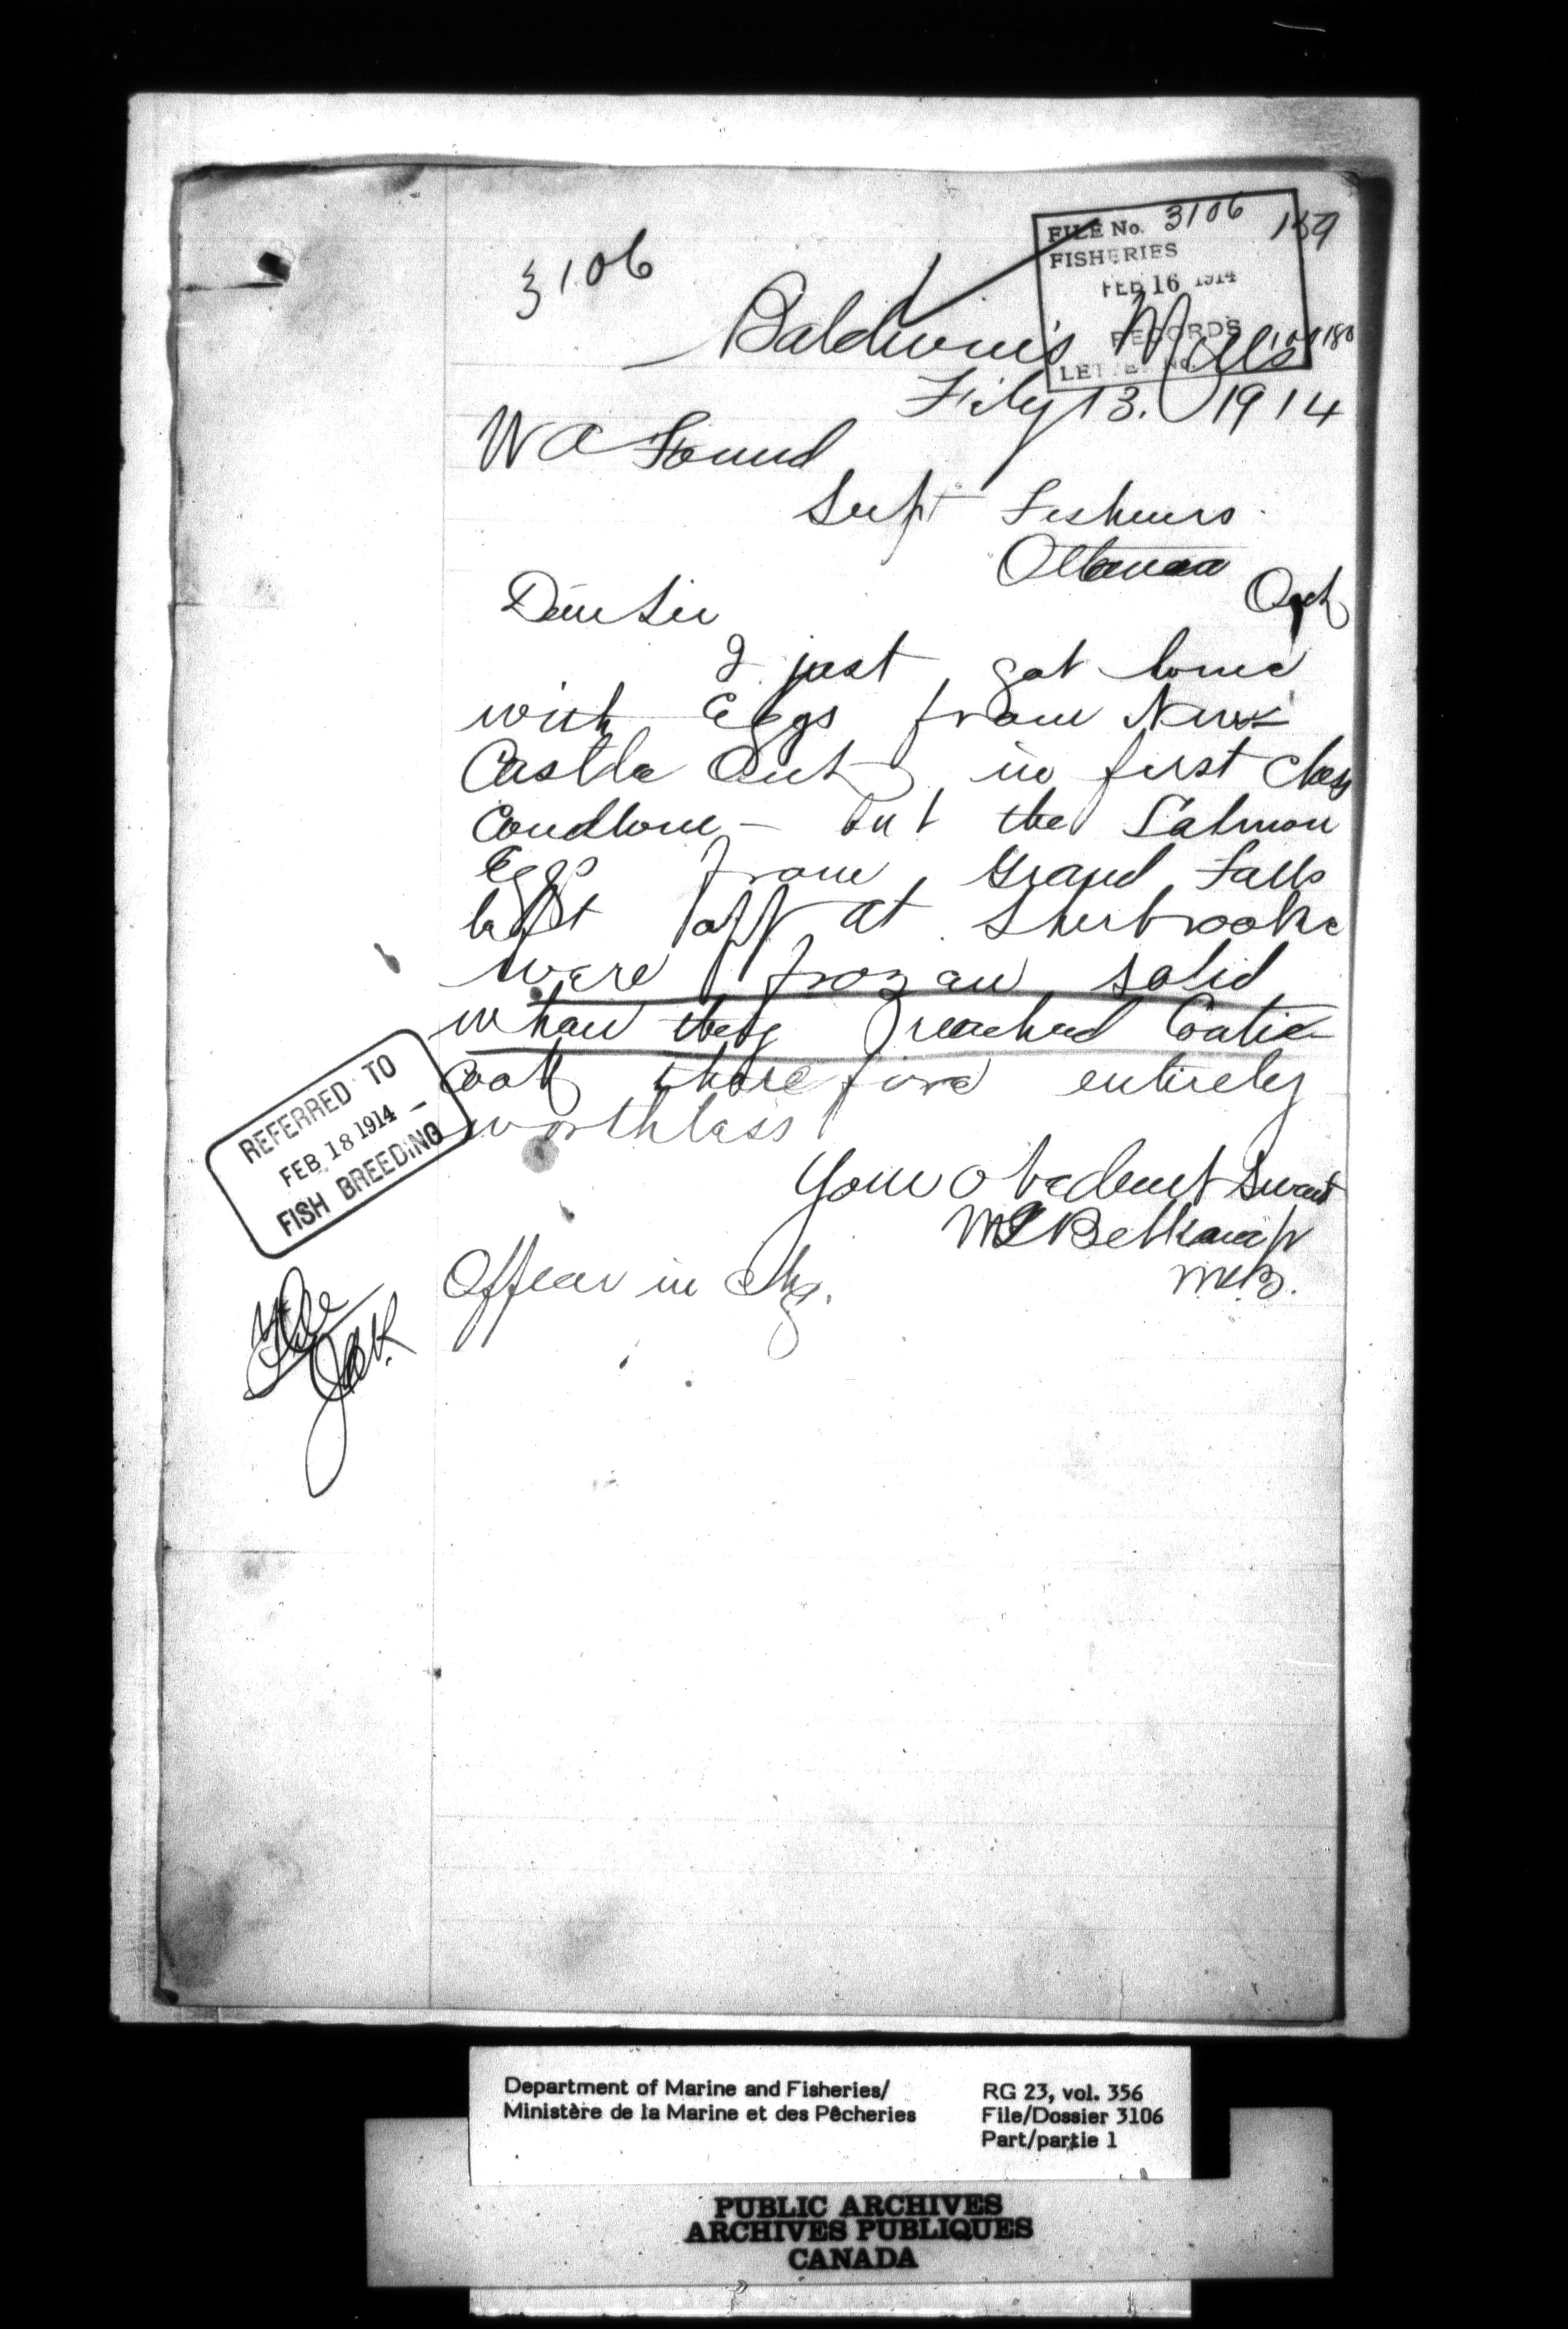 3106
FILE No. 3106 159
FISHERIES
FEB 16 1914
RECORDS
LETTER No.
Baldwin's Mills
Feby 13. 1914
W A Found
Supt Fisheries
Ottawa
Dear Sir
I just got home
with Eggs from New
Castle Ont in first class
Condtion - but the Salmon
Eggs from Grand Falls
left off at Sherbrooke
were frozen solid
when they reached Coati
cook therefore entirely
worthless
Your obedient Servant
Belknap
M.L.B.
Officer in Chg.
REFERRED TO
FEB 18 1914
FISH BREEDING
Department of Marine and Fisheries/
Ministère de la Marine et des Pêcheries
RG 23, vol. 356
File/Dossier 3106
Part/partie 1
PUBLIC ARCHIVES
ARCHIVES PUBLIQUES
CANADA